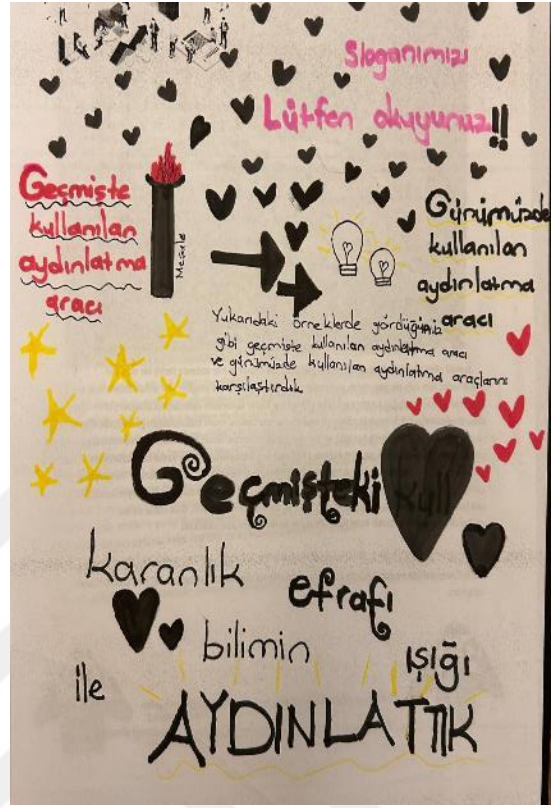 Sloganımızı
Lütfen okuyunuz!!
Geçmişte
kullanılan
aydınlatma
aracı
Meşale
Günümüzde
kullanılan
aydınlatma
aracı
Yukarıdaki örneklerde gördüğünüz
gibi geçmişte kullanılan aydınlatma aracı
ve günümüzde kullanılan aydınlatma araçlarını
karşılaştırdık
Geçmişteki kull
karanlık etrafı
bilimin ışığı
ile
AYDINLATTIK